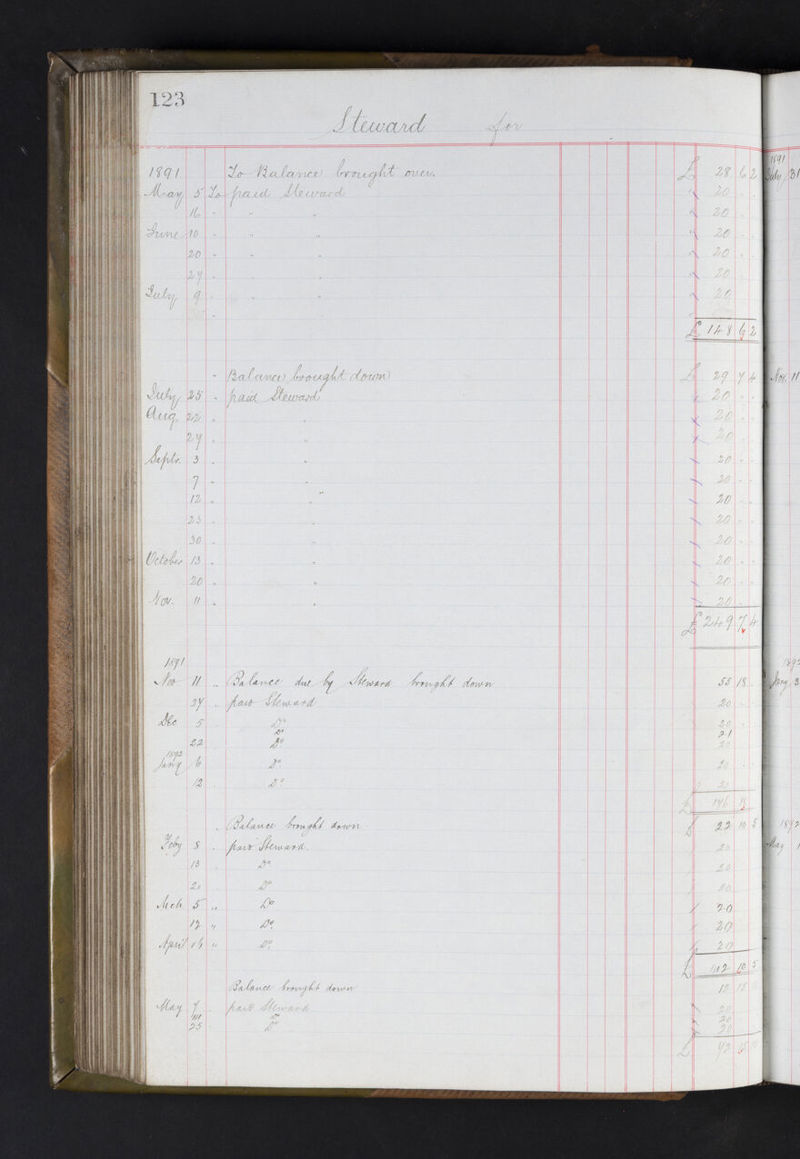 123
Steward for
1891 To Balance brought over £ 28 6 2
May 5 To paid Steward 20 " "
16 " " " 20 " "
June 10 " " " 20 " "
20 " " " 20 " "
27 " " " 20 " "
July 9 " " " 20 " "
£ 148 6 2
" Balance brought down £ 29 7 4
July 25 " paid Steward 20 " "
Aug 22 " " 20 " "
27 " " 20 " "
Septr. 3 " " 20 " "
7 " " 20 " "
12 " " 20 " "
23 " " 20 " "
30 " " 20 " "
October 13 " " 20 " "
20 " " 20 " "
Nov. 11 " " 20 " "
£ 249 7 4
1891
Nov 11 " Balance due by Steward brought down 55 18 "
27 " paid Steward 20
Dec 5 Do 20
Do 21
22 Do 20
1892
Jany 6 Do 20
12 Do 20
£
" Balance brought down £ 22 10 5
Feby 8 " paid Steward 20
13 Do 20
20 Do 20
Mch 5 " Do 20
12 " Do 20
April 16 " Do 20
£ 10 5
Balance brought down
May 7 paid Steward 20
Do 20
25 Do 20
£
1891
July 31
Nov. 11
Jany
May